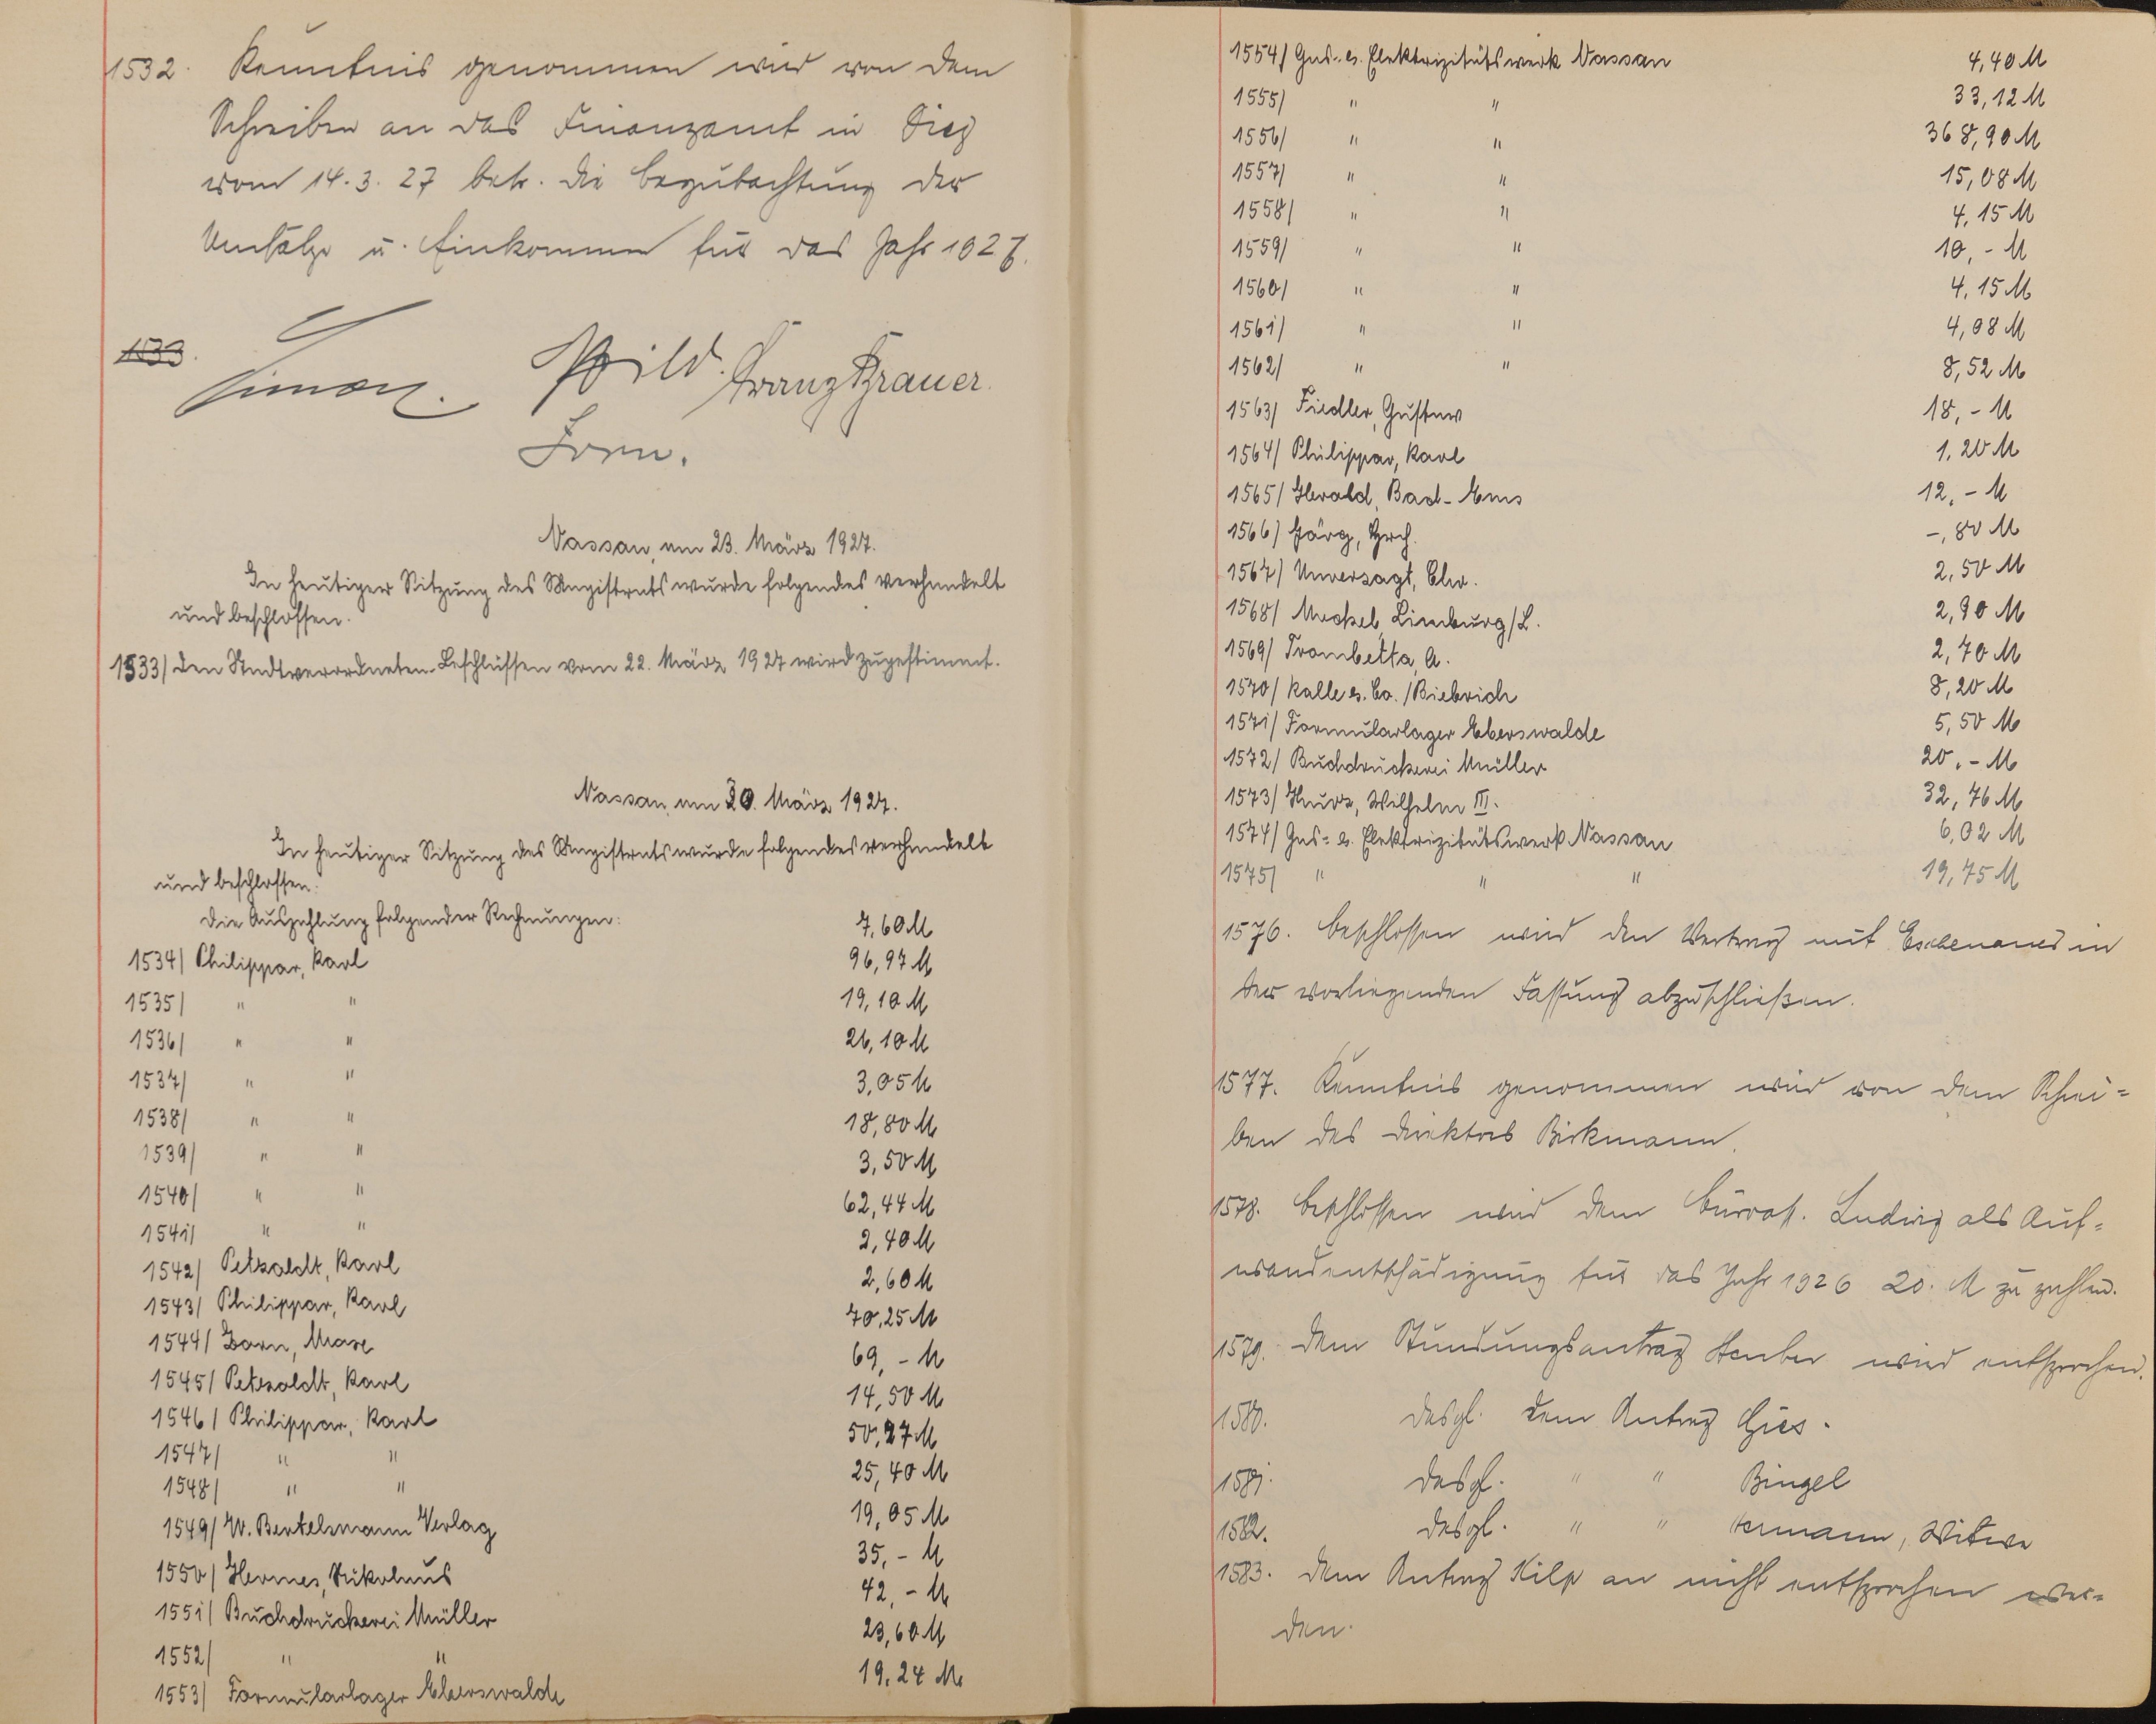 1532. Kenntnis genommen wird von dem
Schreiben an das Finanzamt in Diez
vom 14.3.27 betr. die Begutachtung der
Umsätze u. Einkommen für das Jahr 1927.
1533.
Simon. Wild. Franz Brauer.
Form.
Nassau, am 23. März 1927.
In heutiger Sitzung des Magistrats wurde folgendes verhandelt
und beschlossen.
1533/ Den Stadtverordneten-Beschlüssen vom 22. März 1927 wird zugestimmt.
Nassau, am 30. März 1927.
In heutiger Sitzung des Magistrats wurde folgendes verhandelt
und beschlossen:
Die Auszahlung folgender Rechnungen:
1534/ Philippar, Karl 7,60 M
1535/ " " 96,97 M
1536/ " " 19,10 M
1537/ " " 26,10 M
1538/ " " 3,05 M
1539/ " " 18,80 M
1540/ " " 3,50 M
1541/ " " 62,44 M
1542/ Petzoldt, Karl 2,40 M
1543/ Philippar, Karl 2,60 M
1544/ Born, Marx 70,25 M
1545/ Petzoldt, Karl 69,- M
1546/ Philippar, Karl 14,50 M
1547/ " " 50,27 M
1548/ " " 25,40 M
1549/ W. Bertelsmann Verlag 19,05 M
1550/ Hermes, Nikolaus 35,- M
1551/ Buchdruckerei Müller 42,- M
1552/ " " 23,60 M
1553/ Formularlager Eberswalde 19,24 M
1554/ Gas- u. Elektrizitätswerk Nassau 4,40 M
1555/ " " 33,12 M
1556/ " " 368,90 M
1557/ " " 15,08 M
1558/ " " 4,15 M
1559/ " " 10,- M
1560/ " " 4,15 M
1561/ " " 4,08 M
1562/ " " 8,52 M
1563/ Fiedler, Gustav 18,- M
1564/ Philippar, Karl 1,20 M
1565/ Herold, Bad-Ems 12,- M
1566/ Jörg, Hrch. -,80 M
1567/ Unverzagt, Chr. 2,50 M
1568/ Meckel, Limburg/L. 2,90 M
1569/ Trombetta, A. 2,70 M
1570/ Kalle u. Co./Biebrich 8,20 M
1571/ Formularlager Eberswalde 5,50 M
1572/ Buchdruckerei Müller 20,- M
1573/ Kurz, Wilhelm III. 32,76 M
1574/ Gas- u. Elektrizitätswerk Nassau 6,02 M
1575/ " " " 19,75 M
1576. Beschlossen wird den Vertrag mit Eschenauer in
der vorliegenden Fassung abzuschließen.
1577. Kenntnis genommen wird von dem Schrei=
ben des Direktors Birkmann.
1578. Beschlossen wird dem Büroass. Ludwig als Auf=
wandentschädigung für das Jahr 1926 20. M zu zahlen.
1579. Dem Stundungsantrag wird entsprochen.
1580. Desgl. dem Antrag Gies.
1581. Desgl. " " Bingel
1582. Desgl. " " Hermann, Witwe
1583. Dem Antrag Kilp an nicht entsprochen wer=
den.